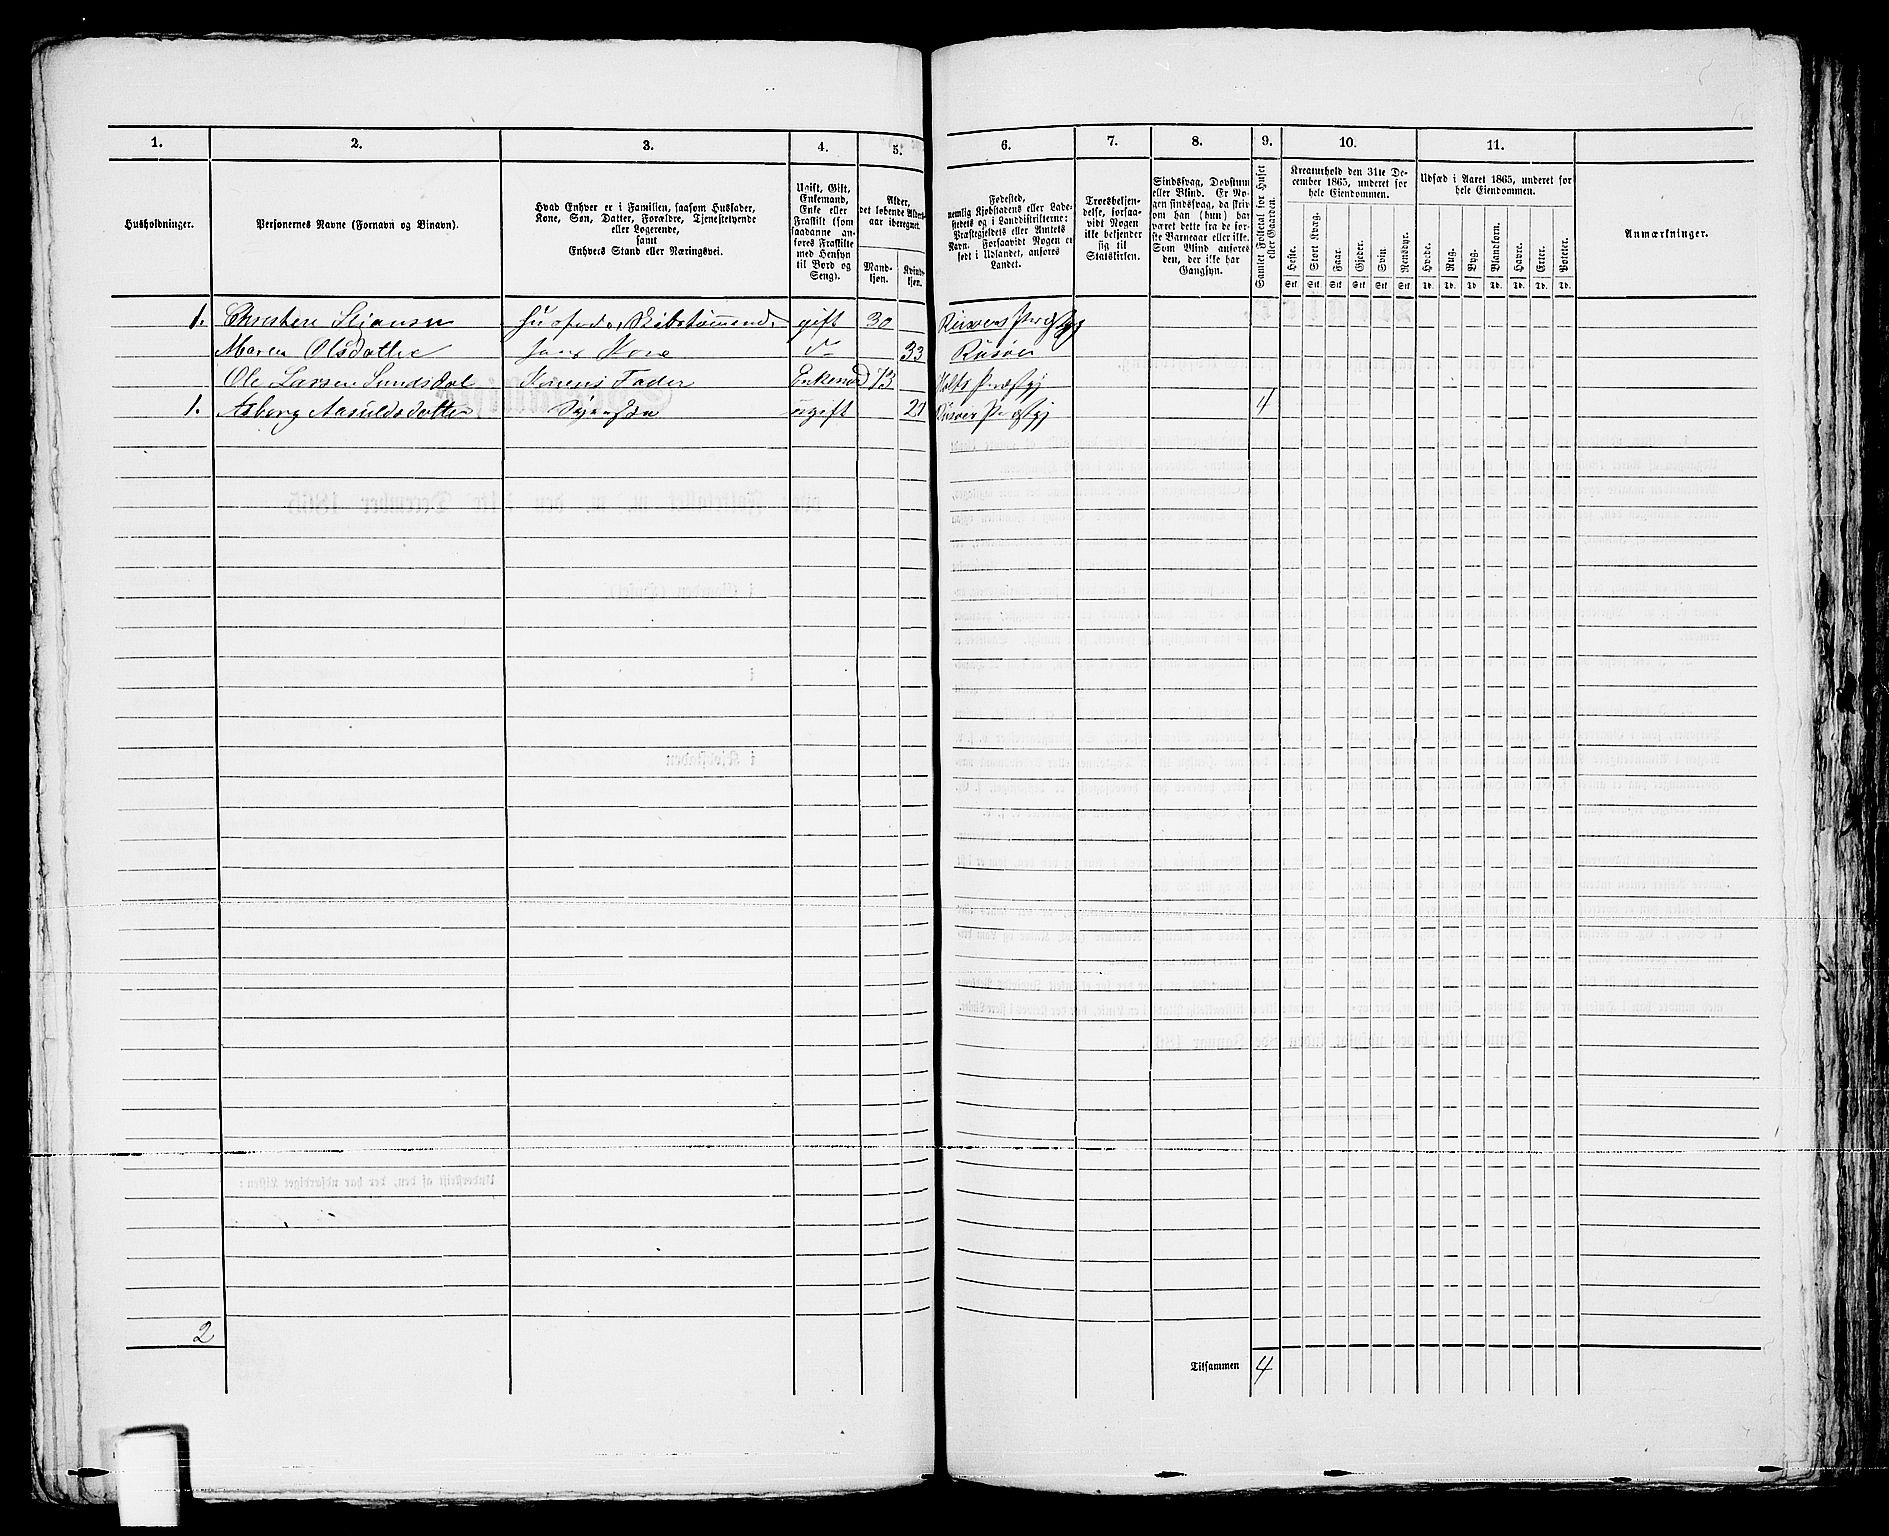 1. 2. 3. 4. 5. 6. 7. 8. 9. 10. 11.
Husholdninger.
Personernes Navne (Fornavn og Binavn).
Hvad Enhver er i Familien, saasom Husfader,
Kone, Søn, Datter, Forældre, Tjenestetyende
eller Logerende,
samt
Enhvers Stand eller Næringsvei.
Ugift, Gift,
Enkemand,
Enke eller
Fraskilt (som
saadanne an-
føres Fraskilte
med Hensyn
til Bord og
Seng).
Alder,
det løbende Alders-
aar iberegnet.
Mand-
kjøn.
Kvinde-
kjøn.
Fødested,
nemlig Kjøbstadens eller Lade-
stedets og i Landdistrikterne:
Præstegjeldets eller Amtets
Navn. Forsaavidt Nogen er
født i Udlandet, anføres
Landet.
Troesbekjen-
delse, forsaa-
vidt Nogen
ikke bekjender
sig til
Statskirken.
Sindssvag, Døvstum
eller Blind. Er No-
gen sindssvag, da skriv
om han (hun) har
været dette fra de før-
ste Barneaar eller ikke.
Som Blind anføres
den, der ikke har
Gangsyn.
Samlet Folketal for Huset
eller Gaarden.
Kreaturhold den 31te De-
cember 1865, underet for
hele Eiendommen.
Heste. Stort Kvæg. Faar. Gjeder. Svin. Rendyr.
Stk Stk Stk Stk Stk Stk
Udsæd i Aaret 1865, underet for
hele Eiendommen.
Hvede. Rug. Byg. Blandkorn. Havre. Erter. Poteter.
Td. Td. Td. Td. Td. Td. Td.
Anmærkninger.
1. gift 30
Maren Olsdatter hans Kone do 33 Risøer
Ole Larsen Sundsdal Konens Fader Enkemd 73 Holts Præstgj
1. Asborg Aasuldsdatter ugift 27 Risøer Præstgj 4
2
Tilsammen 4